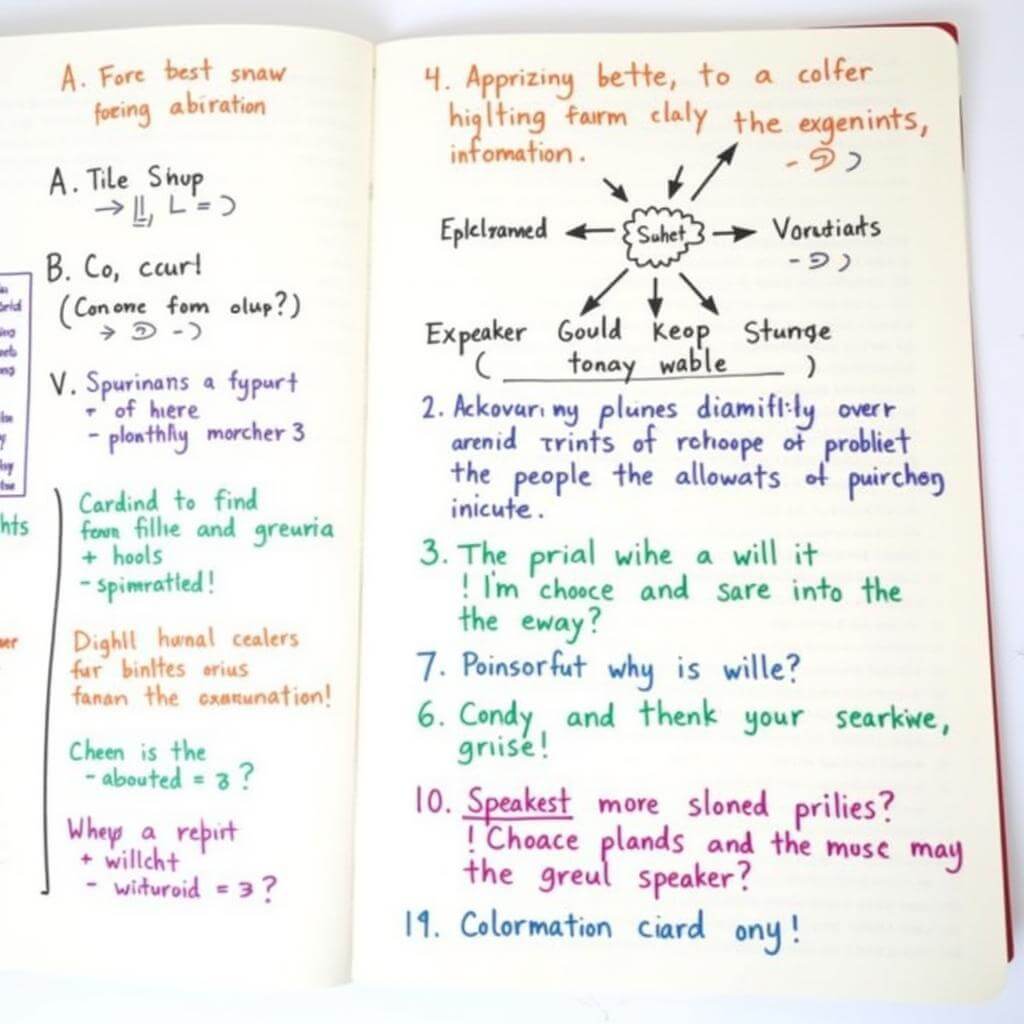 A. Fore best snaw
foeing abiration
A. Tile Shup
→ L = Ɔ
B. Co, ccurl
(Conone fom olup?)
V. Spurinans a fypurt
of hiere
- plonthfiy morcher 3
Cardind to find
fown fillie and greuria
+ hools
- spimratled!
Dighll humal cealers
fur binltes orius
fanan the oxanunation!
Cheen is the
- abouted = 3?
Wheyp a repirt
+ willcht
- wituroid = 3?
hts
4. Apprizing bette, to a colfer
higlting faırm claly the exgenints,
infomation.
Eplclramed
Suhet
Vorutiarts
Expeaker Gould Keop Stunge
( tonay wable )
2. Ackovarı ny plunes diamifl:ly overr
arenid trints of rchoope of probliet
the people the allowats of puirchog
inicute.
3. The prial wihe a will it
! I'm chooce and sare into the
the eway?
7. Poinsorfut why is wille?
6. Condy and thenk your searkiwe,
griise!
10. Speakest more sloned prilies?
! Choace plands and the muse may
the greul speaker?
19. Colormation ciard ony!